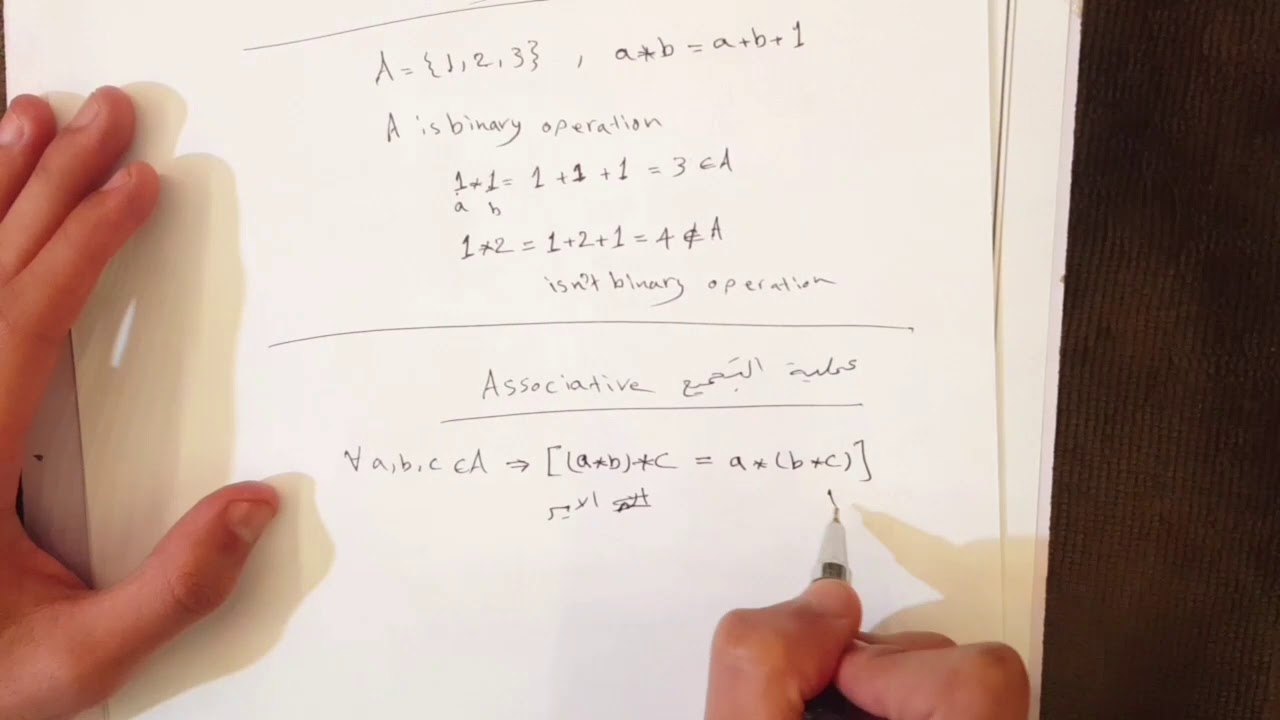 A = {1, 2, 3} , a*b = a+b+1
A is binary operation
1*1 = 1 + 1 + 1 = 3 ∈ A
a b
1*2 = 1+2+1 = 4 ∉ A
isn't binary operation
Associative عملية التجميع
∀ a, b, c ∈ A ⇒ [(a*b)*c = a*(b*c)]